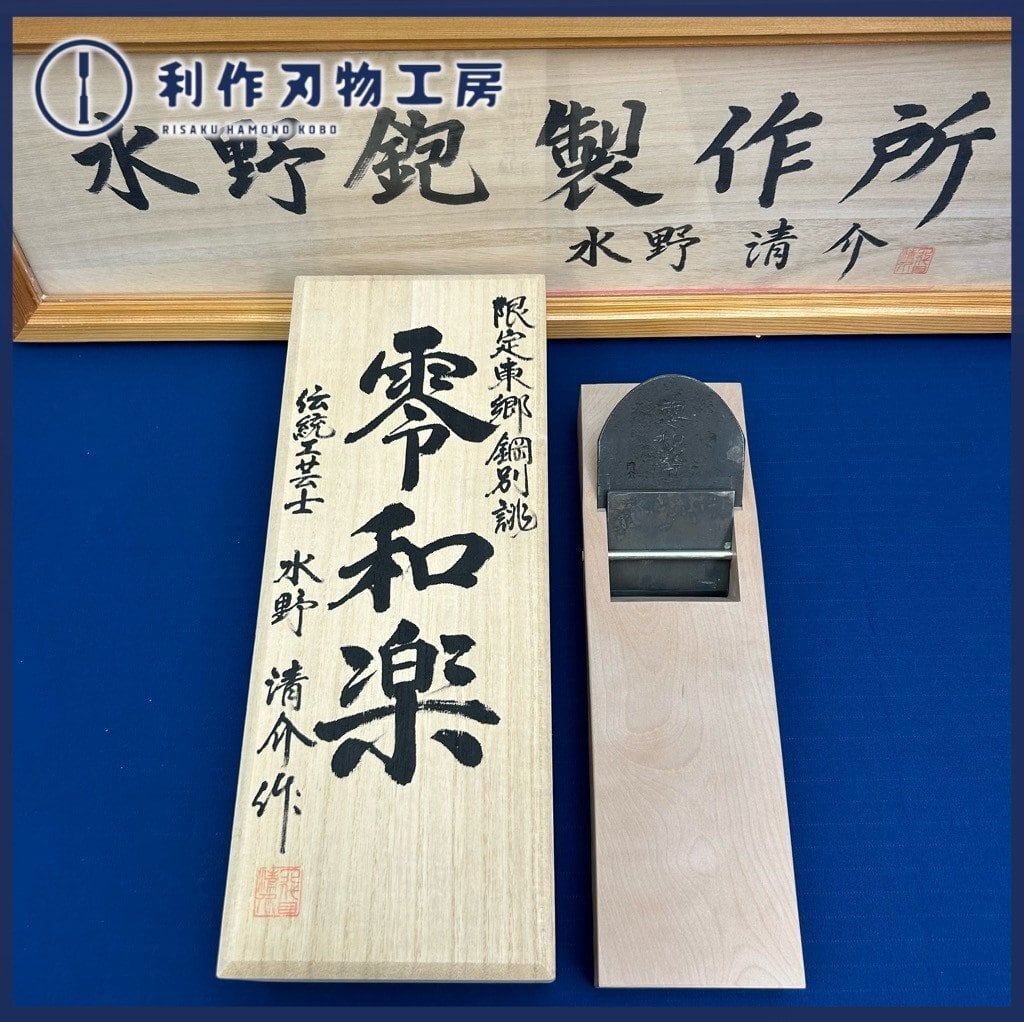 利作刃物工房
RISAKU HAMONO KOBO
水野鉋製作所
水野 清介
限定東郷鋼別誂
零和楽
伝統工芸士 水野 清介作